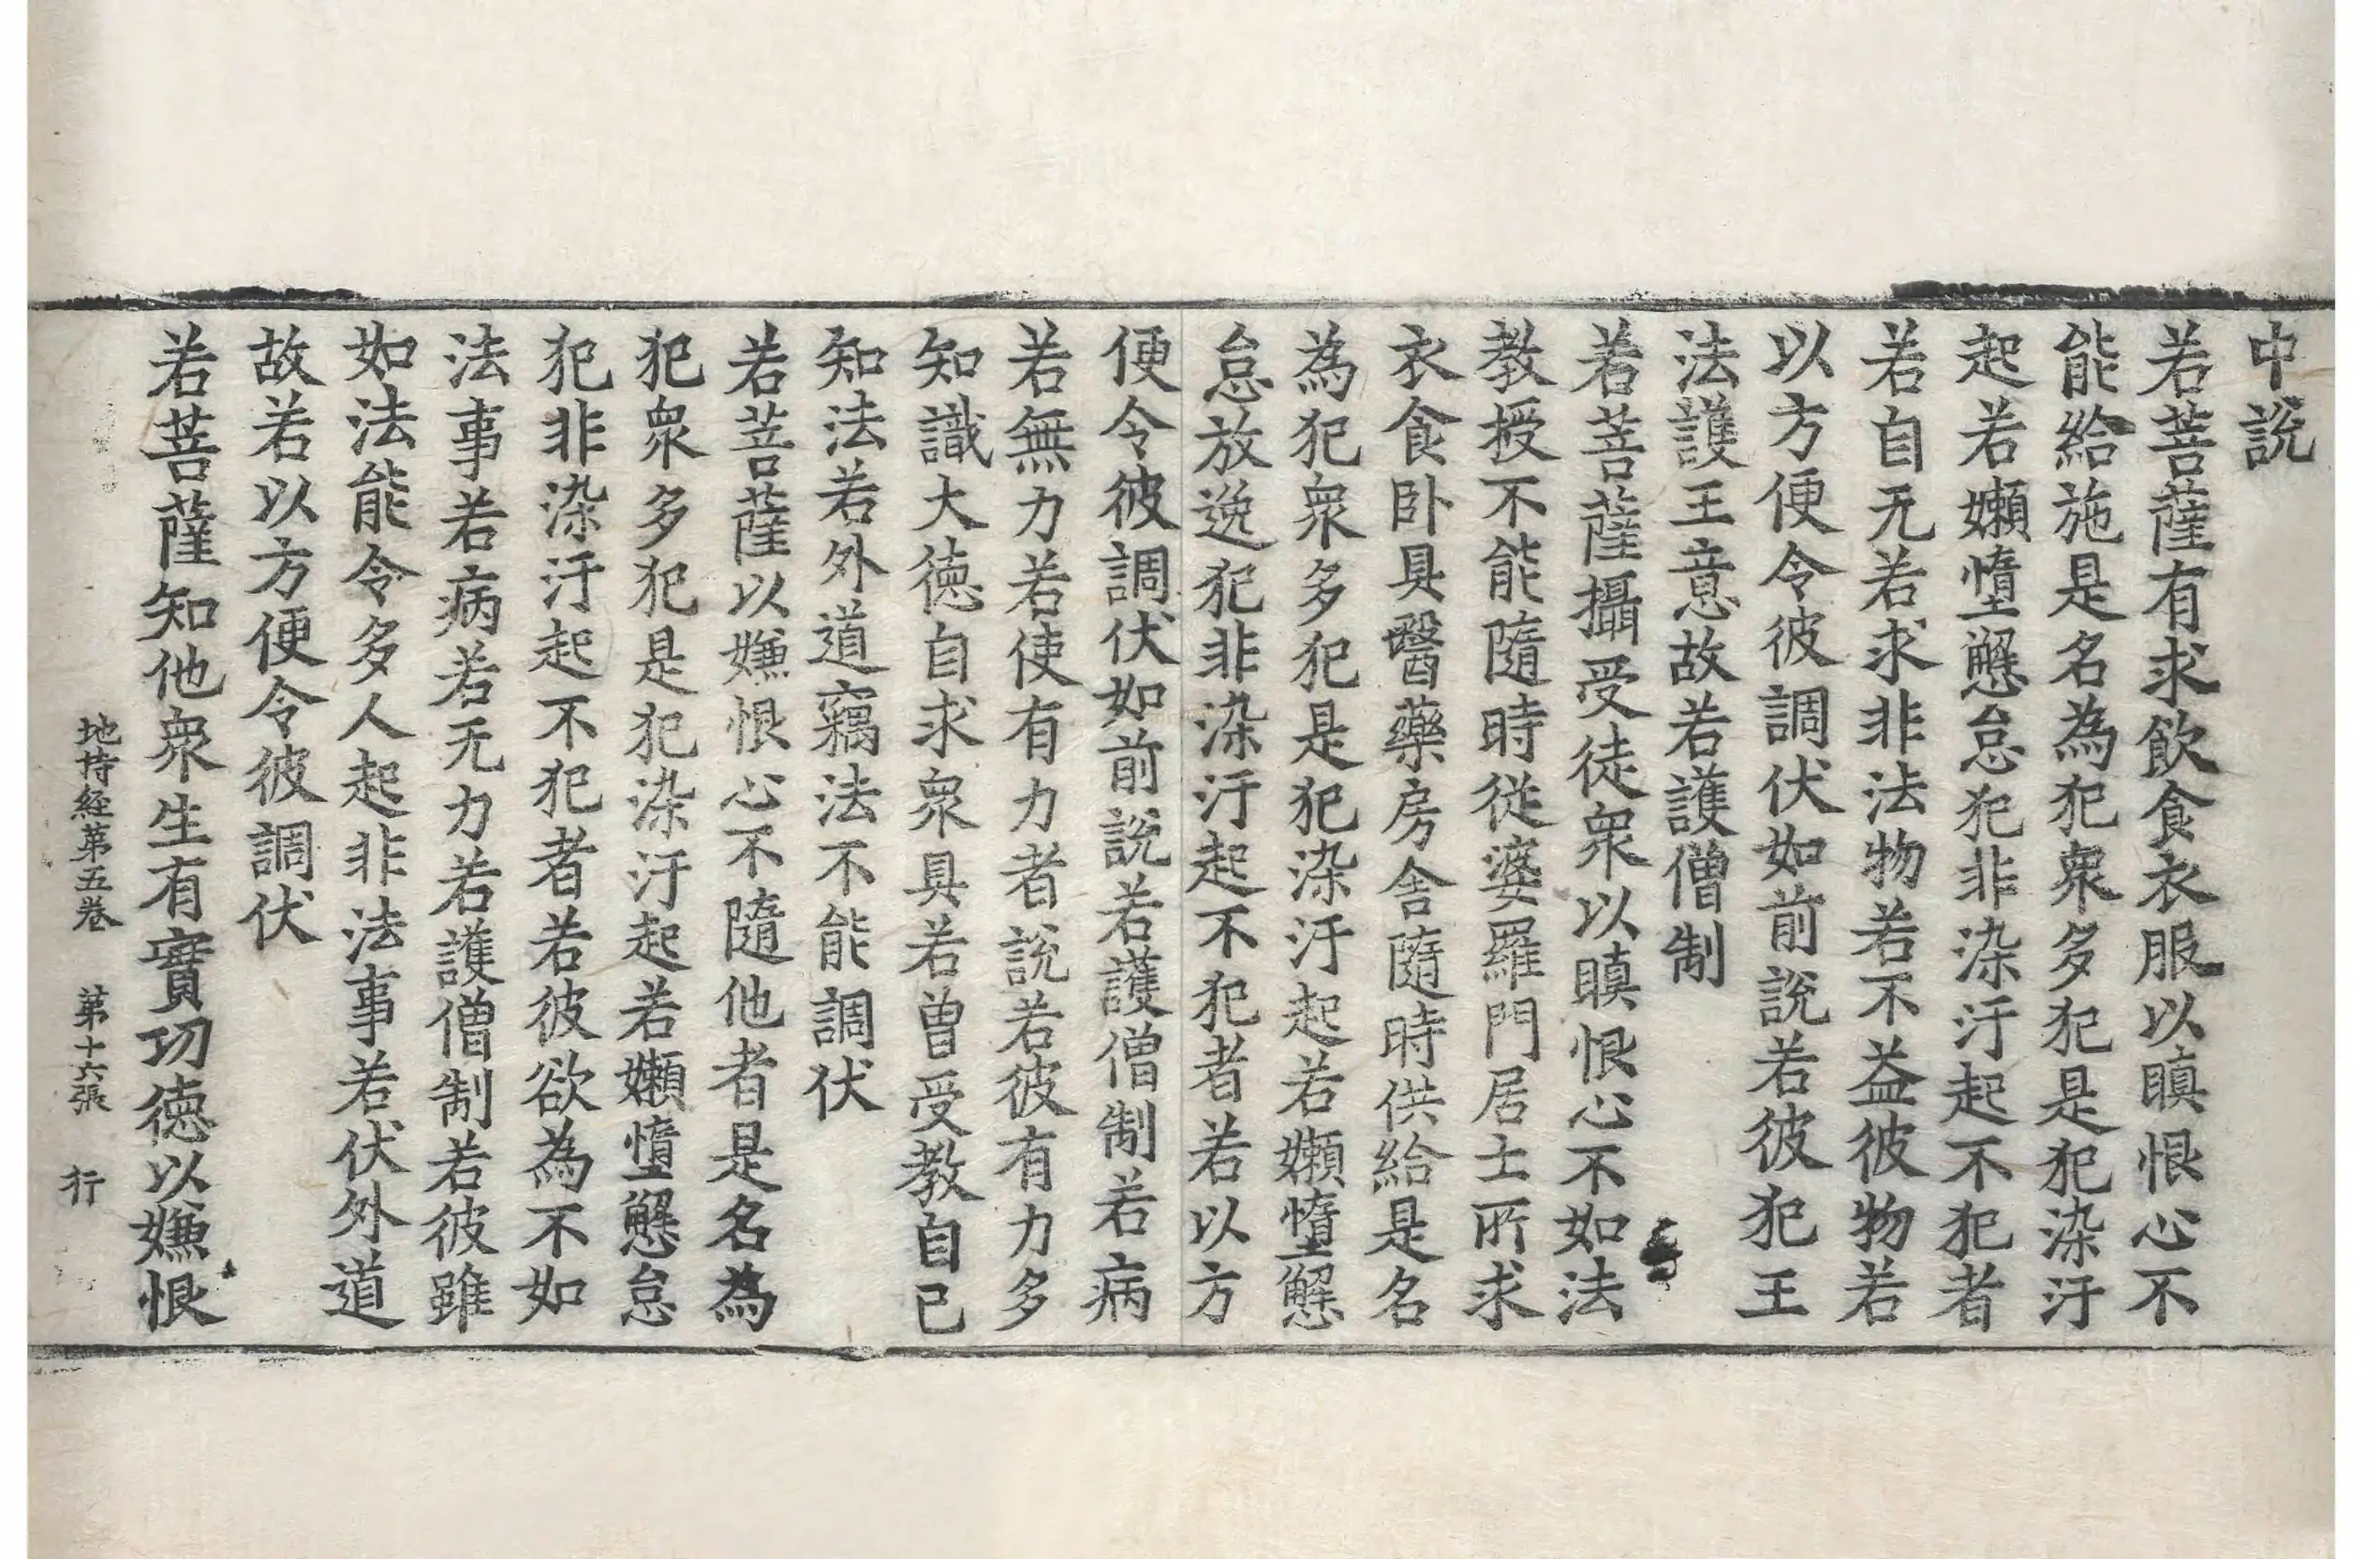 中說
若菩薩有求飲食衣服以瞋恨心不
能給施是名為犯衆多犯是犯染汙
起若嬾墮懈怠犯非染汙起不犯者
若自无若求非法物若不益彼物若
以方便令彼調伏如前說若彼犯王
法護王意故若護僧制
若菩薩攝受徒衆以瞋恨心不如法
教授不能隨時從婆羅門居士所求
衣食卧具醫藥房舍隨時供給是名
為犯衆多犯是犯染汙起若嬾墮懈
怠放逸犯非染汙起不犯者若以方
便令彼調伏如前說若護僧制若病
若無力若使有力者說若彼有力多
知識大德自求衆具若曾受教自已
知法若外道竊法不能調伏
若菩薩以嫌恨心不隨他者是名為
犯衆多犯是犯染汙起若嬾墮懈怠
犯非染汙起不犯者若彼欲為不如
法事若病若无力若護僧制若彼雖
如法能令多人起非法事若伏外道
故若以方便令彼調伏
若菩薩知他衆生有實功德以嫌恨
地持經第五卷 第十六張 行